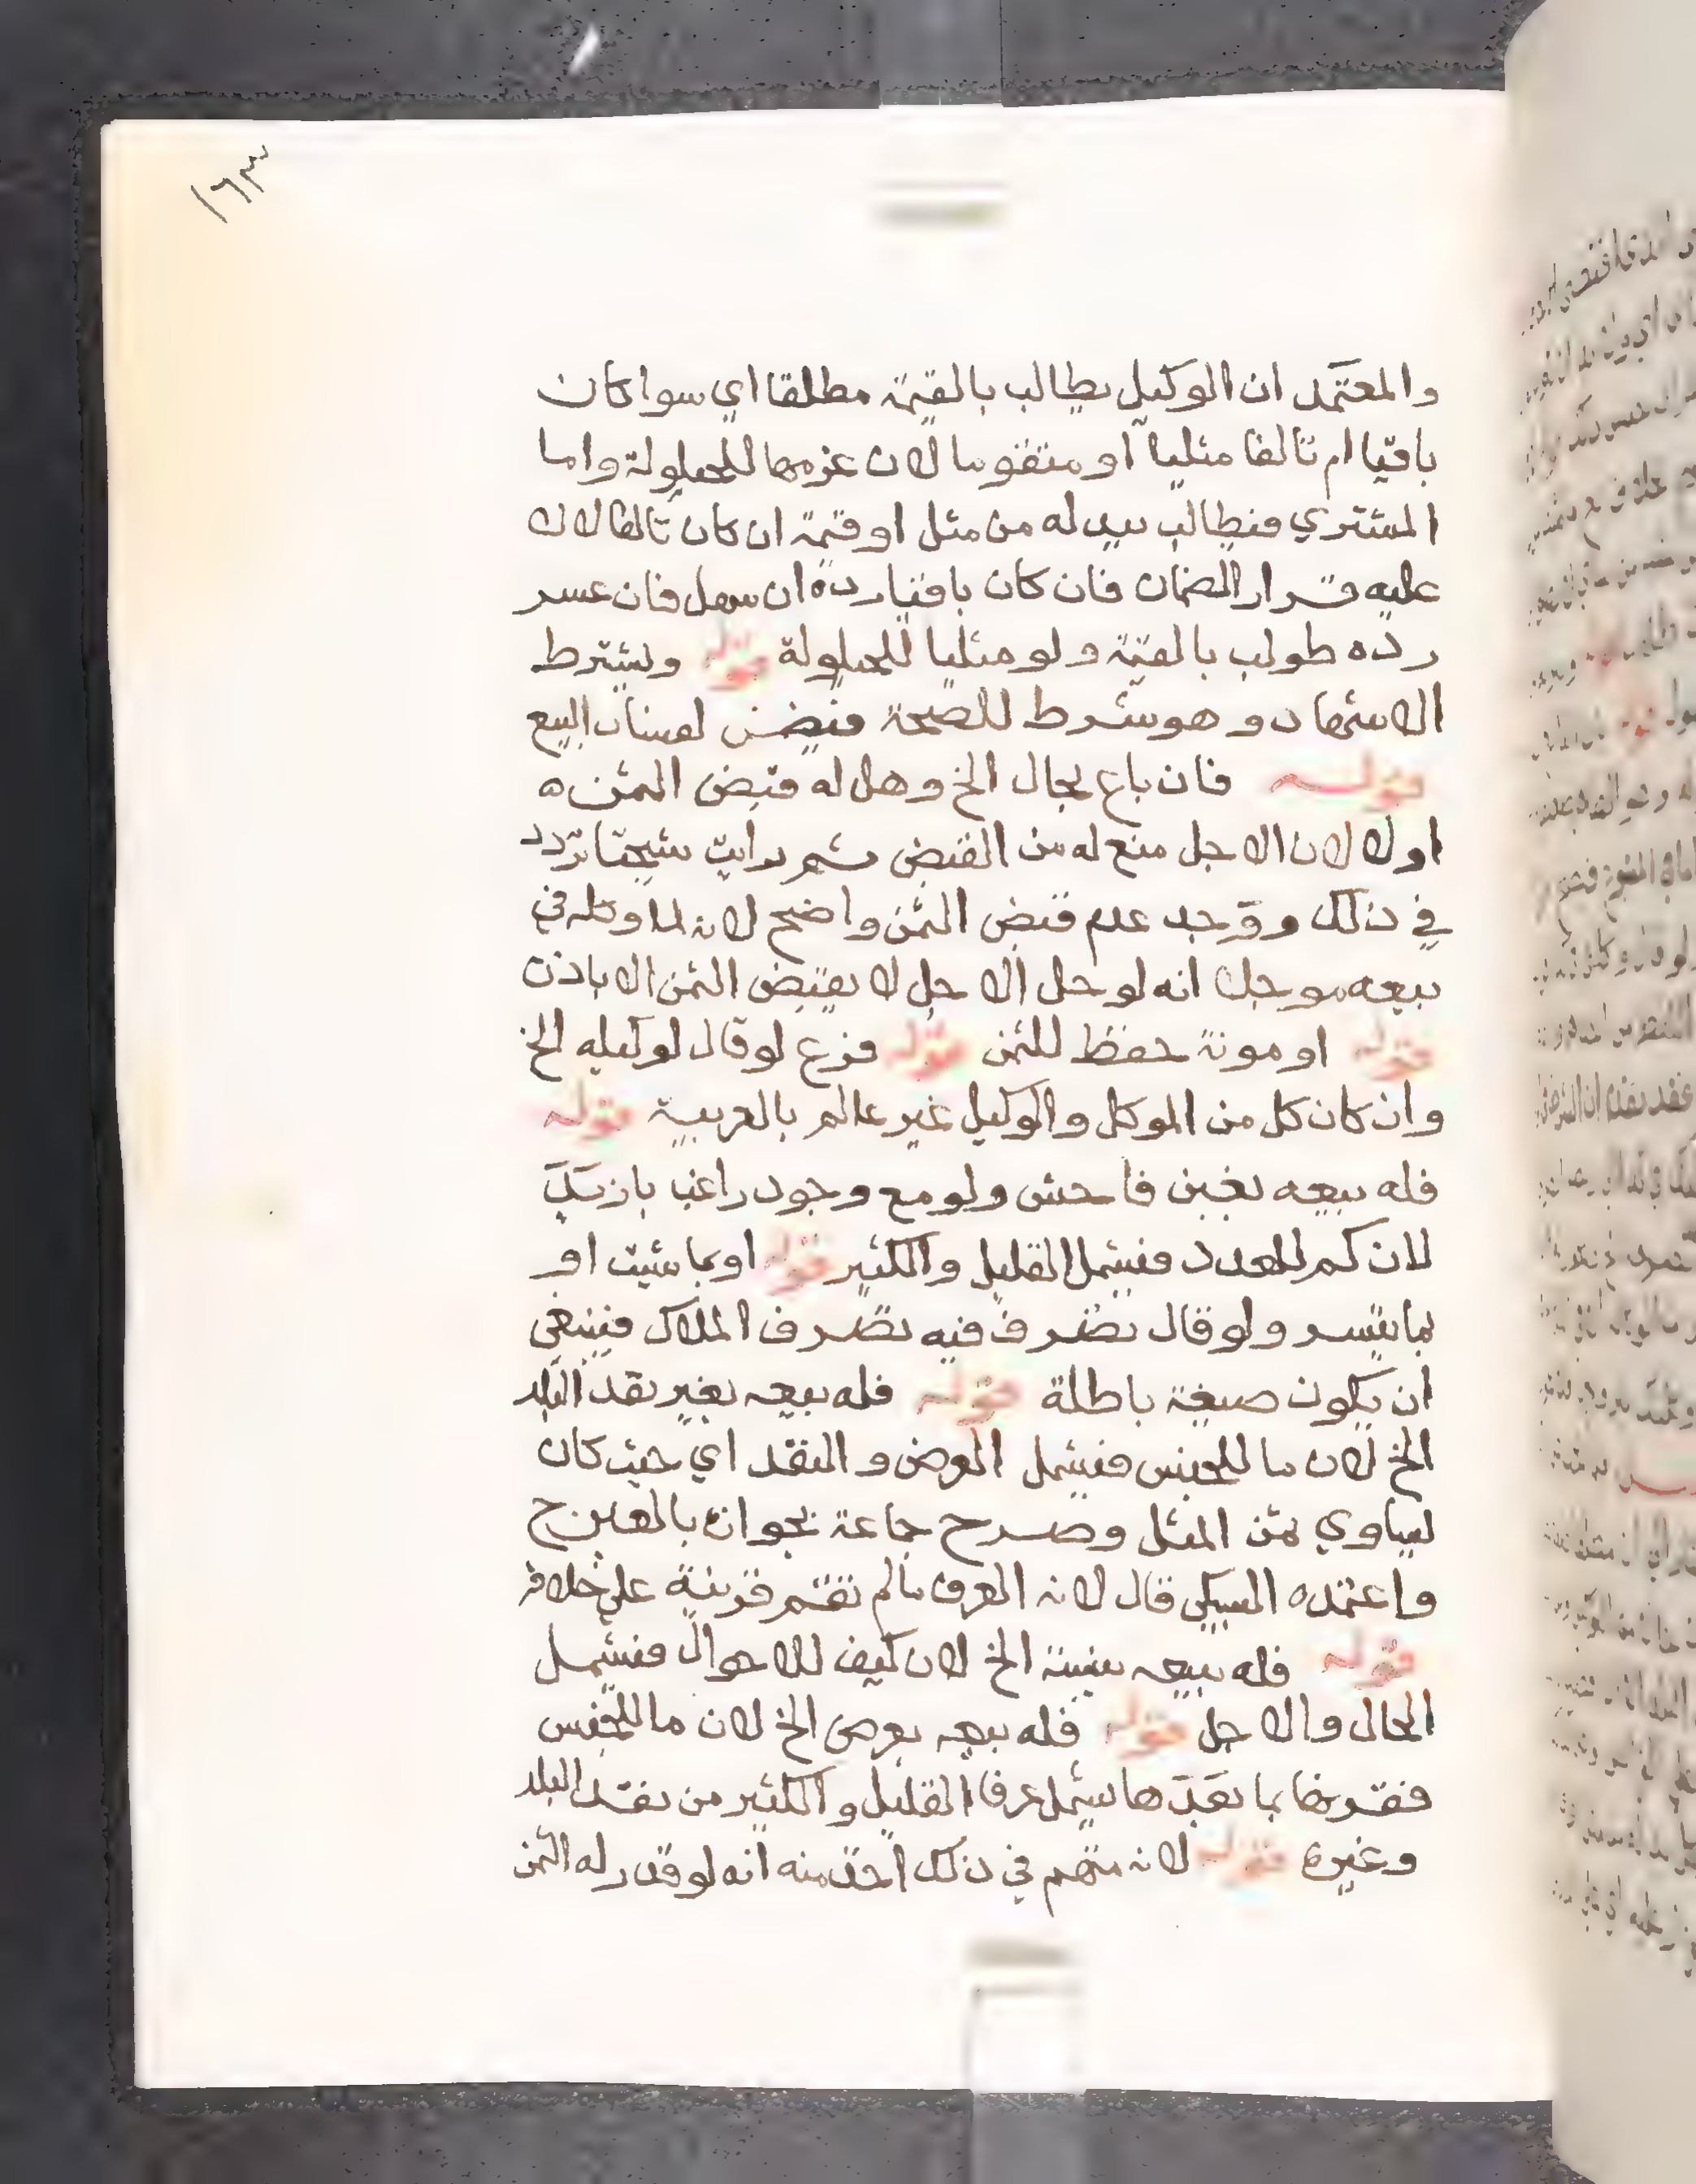 ١٦٣
والمعتمد ان الوكيل يطالب بالقيمة مطلقا اي سوا كان
باقيا ام تالفا مثليا او متقوما لان غرمها للحيلولة واما
المشتري فيطالب ببدله من مثل او قيمة ان كان تالفا لان
عليه قرار الضمان فان كان باقيا رده ان سهل فان عسر
رده طولب بالقيمة ولو مثليا للحيلولة قوله ويشترط
الاشهاد وهو شرط للصحة فيضمن لفساد البيع
قوله فان باع بحال الخ وهل له قبض الثمن ه
اولا لان الاجل منع له من القبض ثم رايت شيخنا تردد
في ذلك ووجه عدم قبض الثمن واضح لانه لما وكله في
بيعه موجلا انه لو حل الاجل لا يقبض الثمن الا باذن
قوله او مونة حفظ للثمن قوله فرع لو قال لوكيله الخ
وان كان كل من الموكل والوكيل غير عالم بالعربية قوله
فله بيعه بغبن فاحش ولو مع وجود راغب بازيد
لان كم للعدد فيشمل القليل والكثير قوله او بما شيت او
بما تيسر ولو قال تصرف فيه تصرف الملاك فينبغي
ان يكون صيغة باطلة قوله فله بيعه بغير نقد البلد
الخ لان ما للجنس فيشمل العرض والنقد اي حيث كان
يساوي ثمن المثل وصرح جماعة بجوازه بالغبن ح
واعتمده السبكي قال لانه العرف ما لم تقم قرينة على خلافه
قوله فله بيعه بنسية الخ لان كيف للاحوال فيشمل
الحال والاجل قوله فله بيعه بعرض الخ لان ما للجنس
فقرنها بما بعدها يشمل عرفا القليل والكثير من نقد البلد
وغيره قوله لانه متهم في ذلك اخذ منه انه لو قدر له الثمن